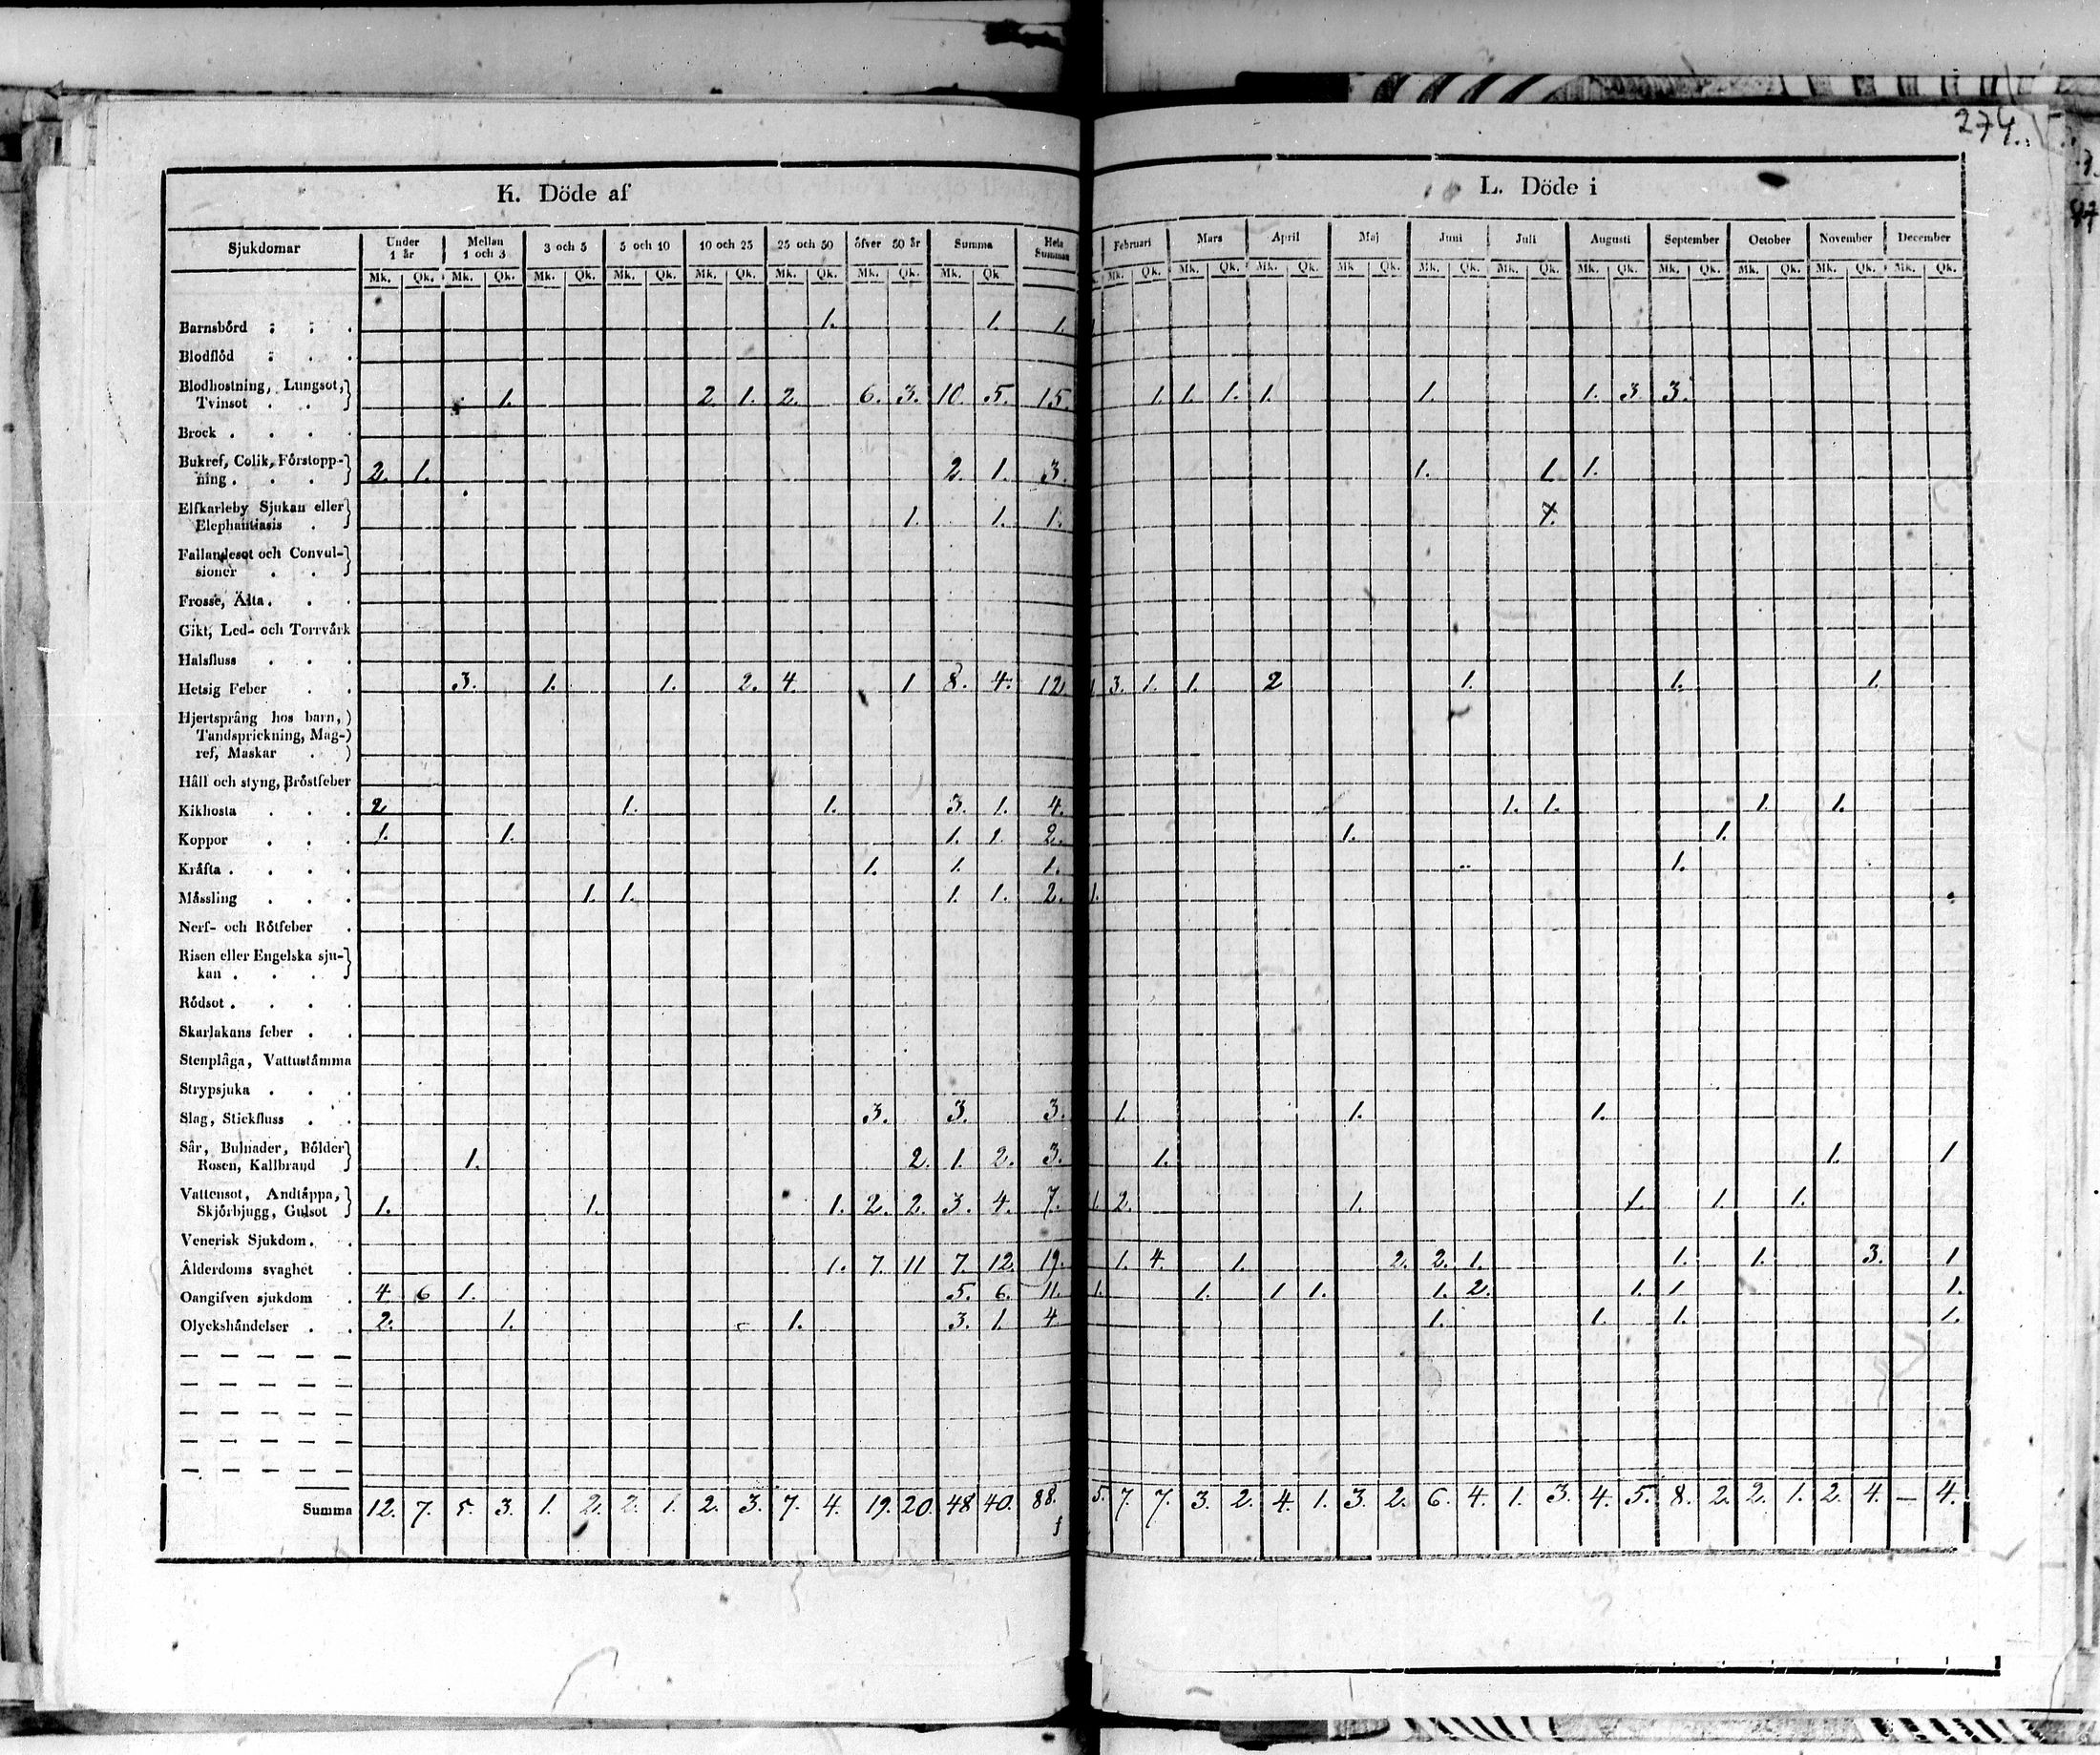 274.
K. Döde af
L. Döde i
Sjukdomar Under 1 år Mellan 1 och 3 3 och 5 5 och 10 10 och 25 25 och 50 öfver 50 år Summa Hela Summan Februari Mars April Maj Juni Juli Augusti September October November December
Mk. Qk. Mk. Qk. Mk. Qk. Mk. Qk. Mk. Qk. Mk. Qk. Mk. Qk. Mk. Qk Mk. Qk. Mk. Qk. Mk. Qk. Mk Qk. Mk. Qk. Mk. Qk. Mk. Qk. Mk. Qk. Mk. Qk. Mk. Qk. Mk. Qk.
Barnsbörd 1. 1. 1.
Blodflöd
Blodhostning, Lungsot,
Tvinsot . . 1. 2 1. 2. 6. 3. 10. 5. 15. 1. 1. 1. 1. 1. 1. 3. 3.
Brock . . . .
Bukref, Colik, Förstopp-
ning . . . 2. 1. 2. 1. 3. 1. 1. 1.
Elfkarleby Sjukan eller
Elephantiasis . 1. 1. 1.
Fallandesot och Convul-
sioner . .
Frosse, Älta . . .
Gikt, Led- och Torrvärk
Halsfluss . . .
Hetsig Feber . . 3. 1. 1. 2. 4. 1 8. 4. 12. 1 3. 1. 1. 2 1. 1. 1.
Hjertsprång hos barn,
Tandsprickning, Mag-
ref, Maskar .
Håll och styng, Bröstfeber
Kikhosta . . . 2 1. 1. 3. 1. 4. 1. 1. 1. 1.
Koppor . . . 1. 1. 1. 1. 2. 1. 1.
Kräfta . . . . 1. 1. 1. 1.
Mässling . . . 1. 1. 1. 1. 2. 1.
Nerf- och Rötfeber .
Risen eller Engelska sju-
kan . . .
Rödsot . . . .
Skarlakans feber . .
Stenplåga, Vattustämma
Strypsjuka . . .
Slag, Stickfluss . . 3. 3. 3. 1. 1. 1.
Sår, Bulnader, Bölder
Rosen, Kallbrand 1. 2. 1. 2. 3. 1. 1. 1
Vattensot, Andtäppa,
Skjörbjugg, Gulsot 1. 1. 1. 2. 2. 3. 4. 7. 1. 2. 1. 1. 1. 1.
Venerisk Sjukdom . .
Ålderdoms svaghet . 1. 7. 11 7. 12. 19. 1. 4. 1. 2. 2. 1. 1. 1. 3. 1
Oangifven sjukdom . 4. 6 1. 5. 6. 11. 1. 1. 1 1. 1. 2. 1. 1 1.
Olyckshändelser . . 2. 1. 1. 3. 1. 4 1. 1. 1. 1.
Summa 12. 7. 5. 3. 1. 2. 2. 1. 2. 3. 7. 4. 19. 20. 48 40. 88. 5. 7. 7. 3. 2. 4. 1. 3. 2. 6. 4. 1. 3. 4. 5. 8. 2. 2. 1. 2. 4. — 4.